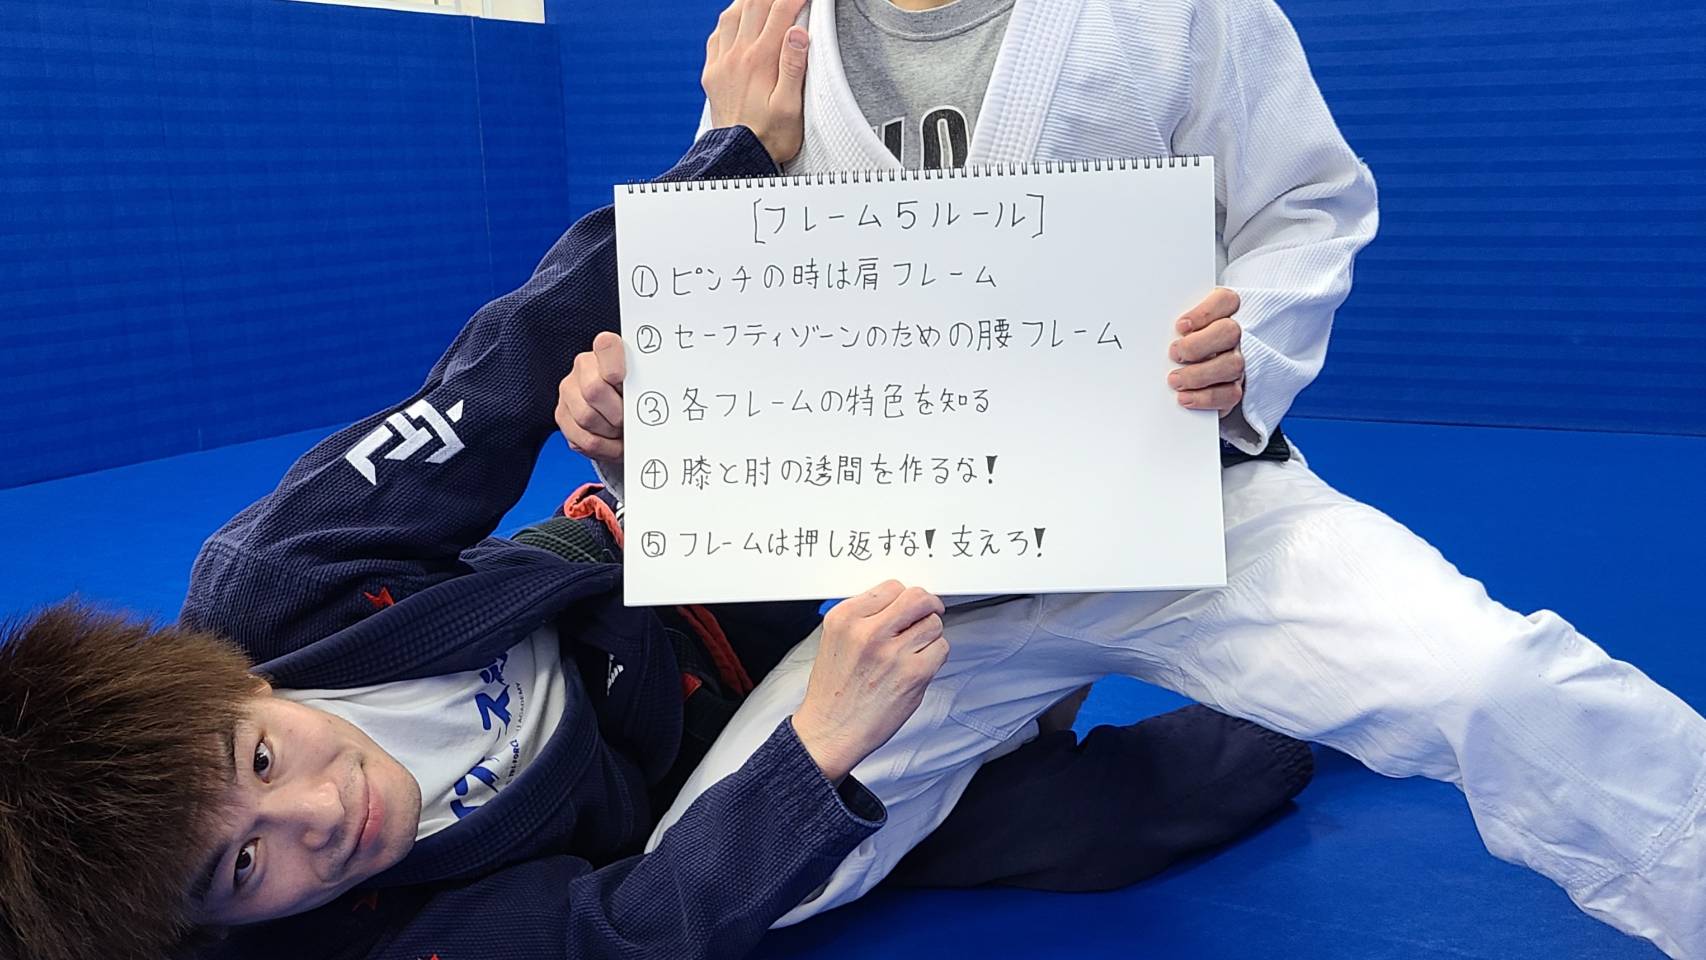 [フレーム5ルール]
① ピンチの時は肩フレーム
② セーフティゾーンのための腰フレーム
③ 各フレームの特色を知る
④ 膝と肘の透間を作るな!
⑤ フレームは押し返すな! 支えろ!